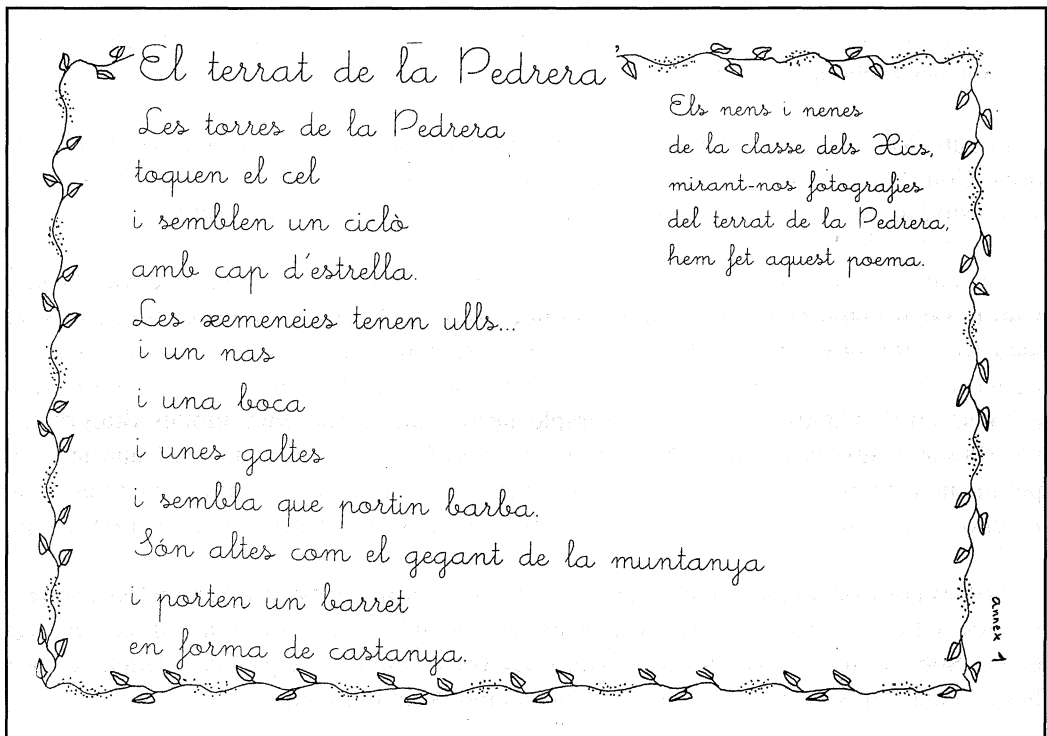 El terrat de la Pedrera
Les torres de la Pedrera
toquen el cel
i semblen un ciclò
amb cap d'estrella.
Les xemeneies tenen ulls...
i un nas
i una boca
i unes galtes
i sembla que portin barba.
Són altes com el gegant de la muntanya
i porten un barret
en forma de castanya.
Els nens i nenes
de la classe dels Xics,
mirant-nos fotografies
del terrat de la Pedrera,
hem fet aquest poema.
annex 1